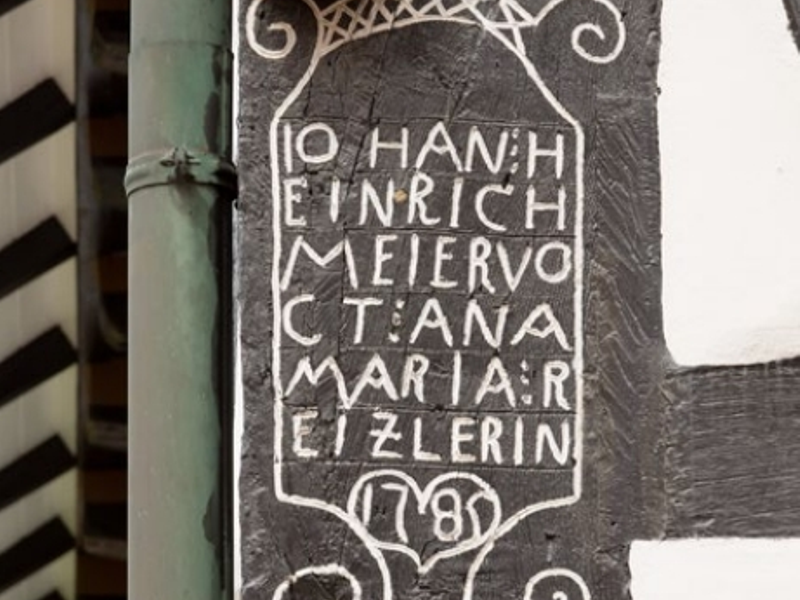 IO HAN⁝H
EINRICH
MEIERVO
CT⁝ANA
MARIA⁝R
EIZLERIN
1785